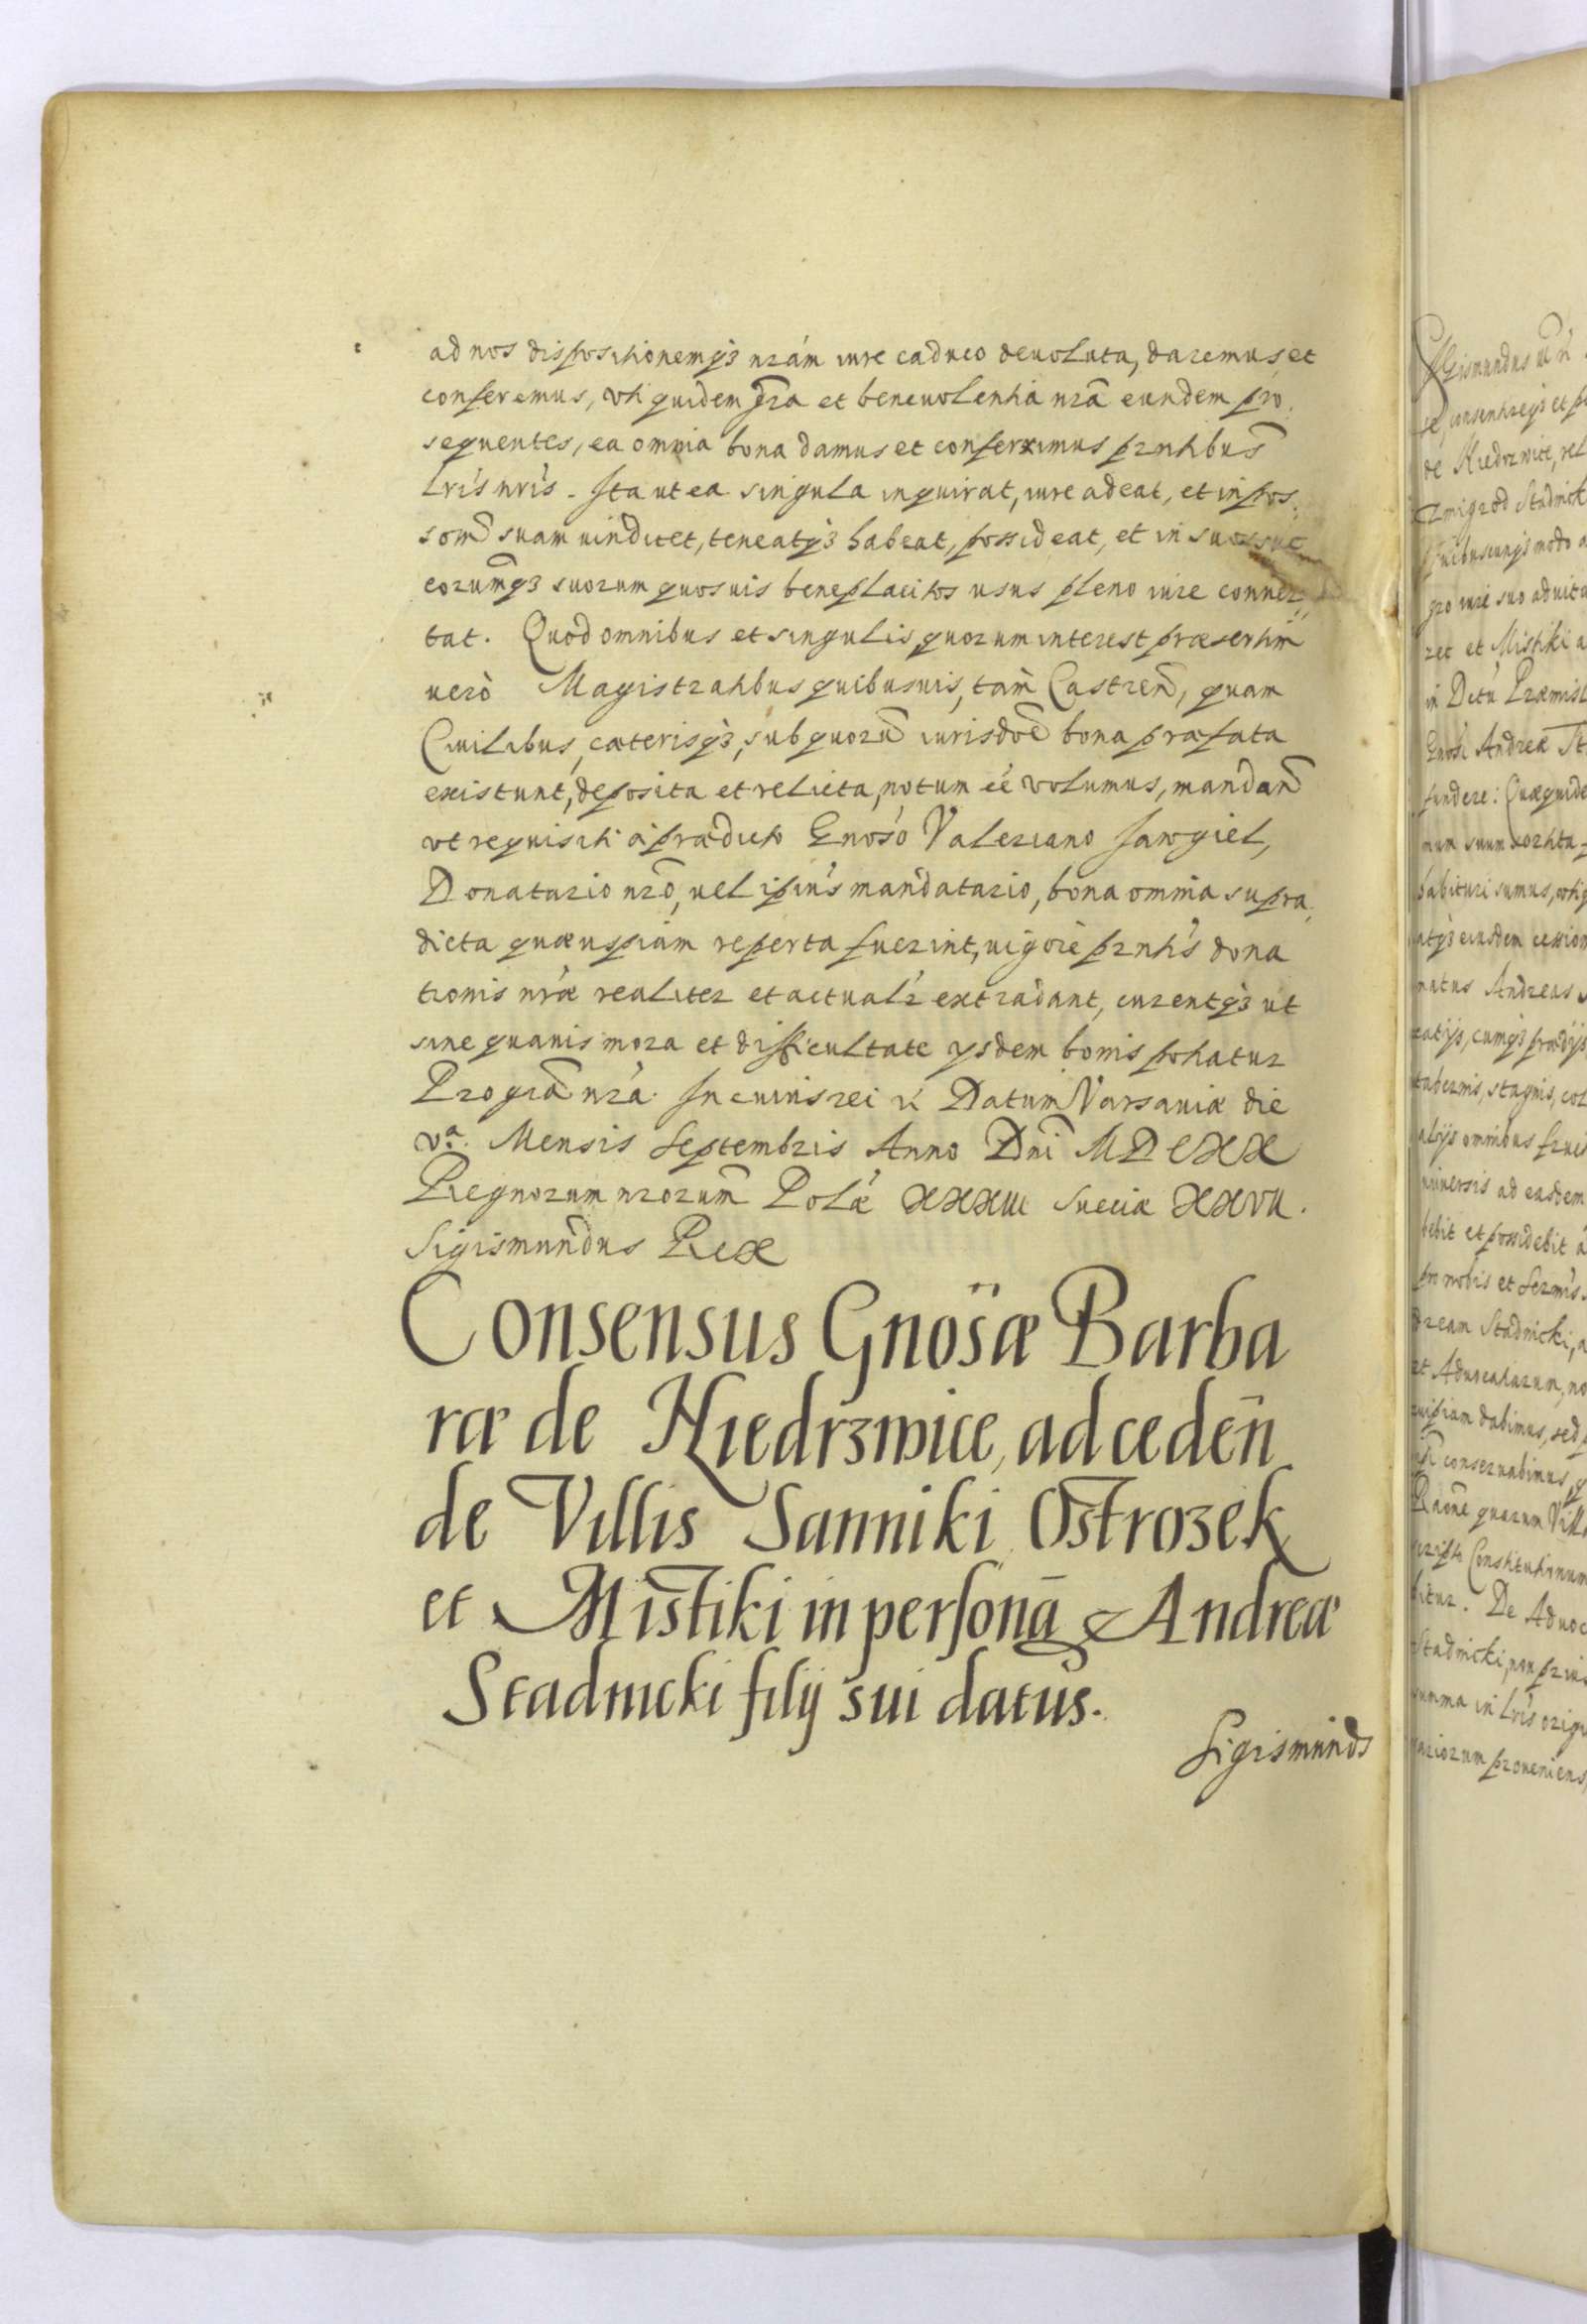 ad nos dispositionemqȝ nrám iure caduco deuoluta, daremus et
conferemus, vti quidem gr̃a et beneuolentia nrã eundem pro,
sequentes, ea omnia bona damus et conferrimus prntibus̃
lrís nrís. Ita ut ea singula inquirat, iure adeat, et in pos,
som̃ suam uindicet, teneatqȝ habeat, possideat, et in suos
eorum̃qȝ suorum quosuis beneplacitos usus pleno iure conuer,
tat. Quod omnibus et singulis, quorum interest præsertim̃
uerò Magistratibus quibusuis, tam̀ Castren̄, quam
Ciuilibus, cæterisqȝ, sub quorũ iurisdoẽ bona præfata
existunt, deposita et relicta, notum eé volumus, mandan̄
vt requisiti à prædicto Gnosó Valeriano Jawgiel,
Donatario nrõ, uel ipiús mandatario, bona omnia supra,
dicta quæuspiam reperta fuerint, uigore prntís dona
tionis nráe realiter et actualr extradant, curentqȝ ut
sine quauis mora et difficultate ysdem bonis potiatur
Pro grã nrá. In cuius rei Datum Varsauiæ die
vª. Mensis Septembris Anno Dni̇̃ MDCXX
Regnorum nrorum̃ Poláe XXXIII Sueciæ XXVII.
Sigismundus Rex
Consensus Gnosæ Barba
ræ de Niedrzwice, ad ceden̄
de Villis Sanniki Ostrozek
et Mistiki in personā Andreæ
Stadnicki filij sui datus.
Sigismunds
Sigismundus
se, consensuqȝ et
de Niedrzwice, rel
Zmigrod Stadnick
quibuscunqȝ modo a
pro iure suo aduita
zek et Mistiki a
in Distú Præmisl
Gnosi Andreæ St
fundere: Quæquide
habituri sumus, vtiq
atqȝ eiusdem cession
natus Andreas
catijs, cumqȝ prædijs
tabernis, stagnis, col
alijs omnibus fruct
niuersis ad easdem
bebit et possidebit à
pro nobis et Sermís
dream Stadnicki, a
et Aduocatiarum, no
cuipiam dabimus, sed
conseruabimus, q
Raoñe quarum Villa
scripto Constitutionum
bitur. De Aduoc
Stadnicki, non prius
summa in Lrís origi
uariorum proueniens,